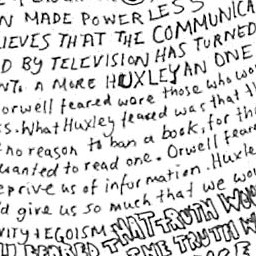 N MADE POWERLESS
LIEVES THAT THE COMMUNICA
D BY TELEVISION HAS TURNED
INTO A MORE HUXLEYAN ONE
orwell feared were those who wo
S. What Huxley feared was that th
no reason to ban a book, for th
wanted to read one. Orwell feare
eprive us of information. Huxle
d give us so much that we wou
VITY & EGOISM. THAT TRUTH WOU
FEARED THE TRUTH W